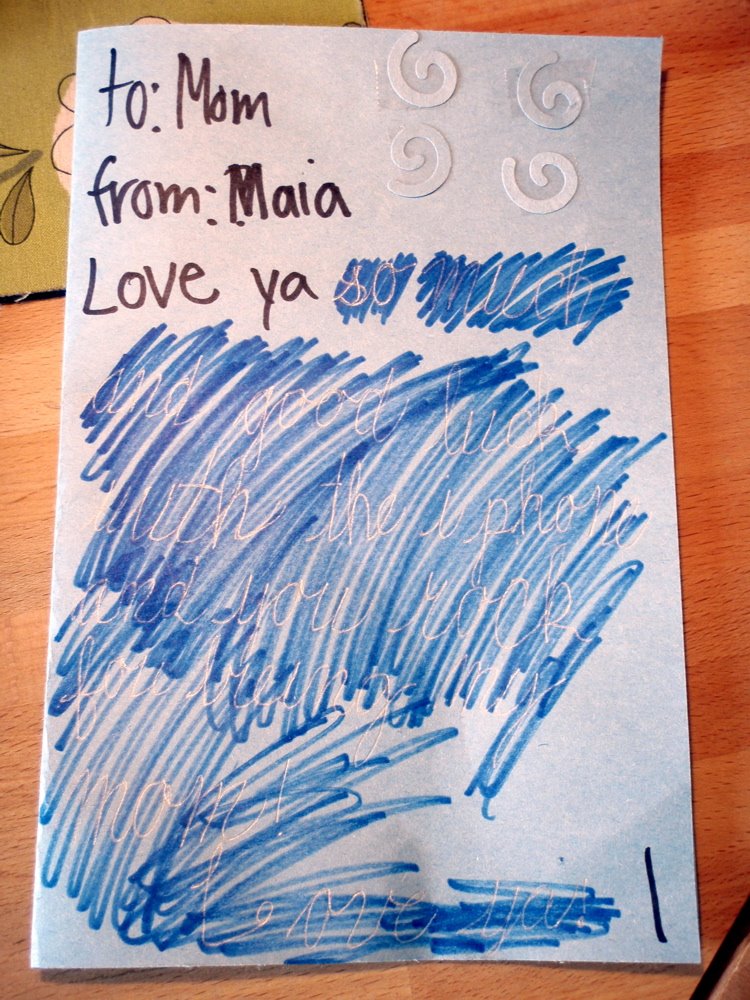 to: Mom
from: Maia
Love ya so much
and good luck
with the iphone
and you rock
for being my
mom!
Love ya!